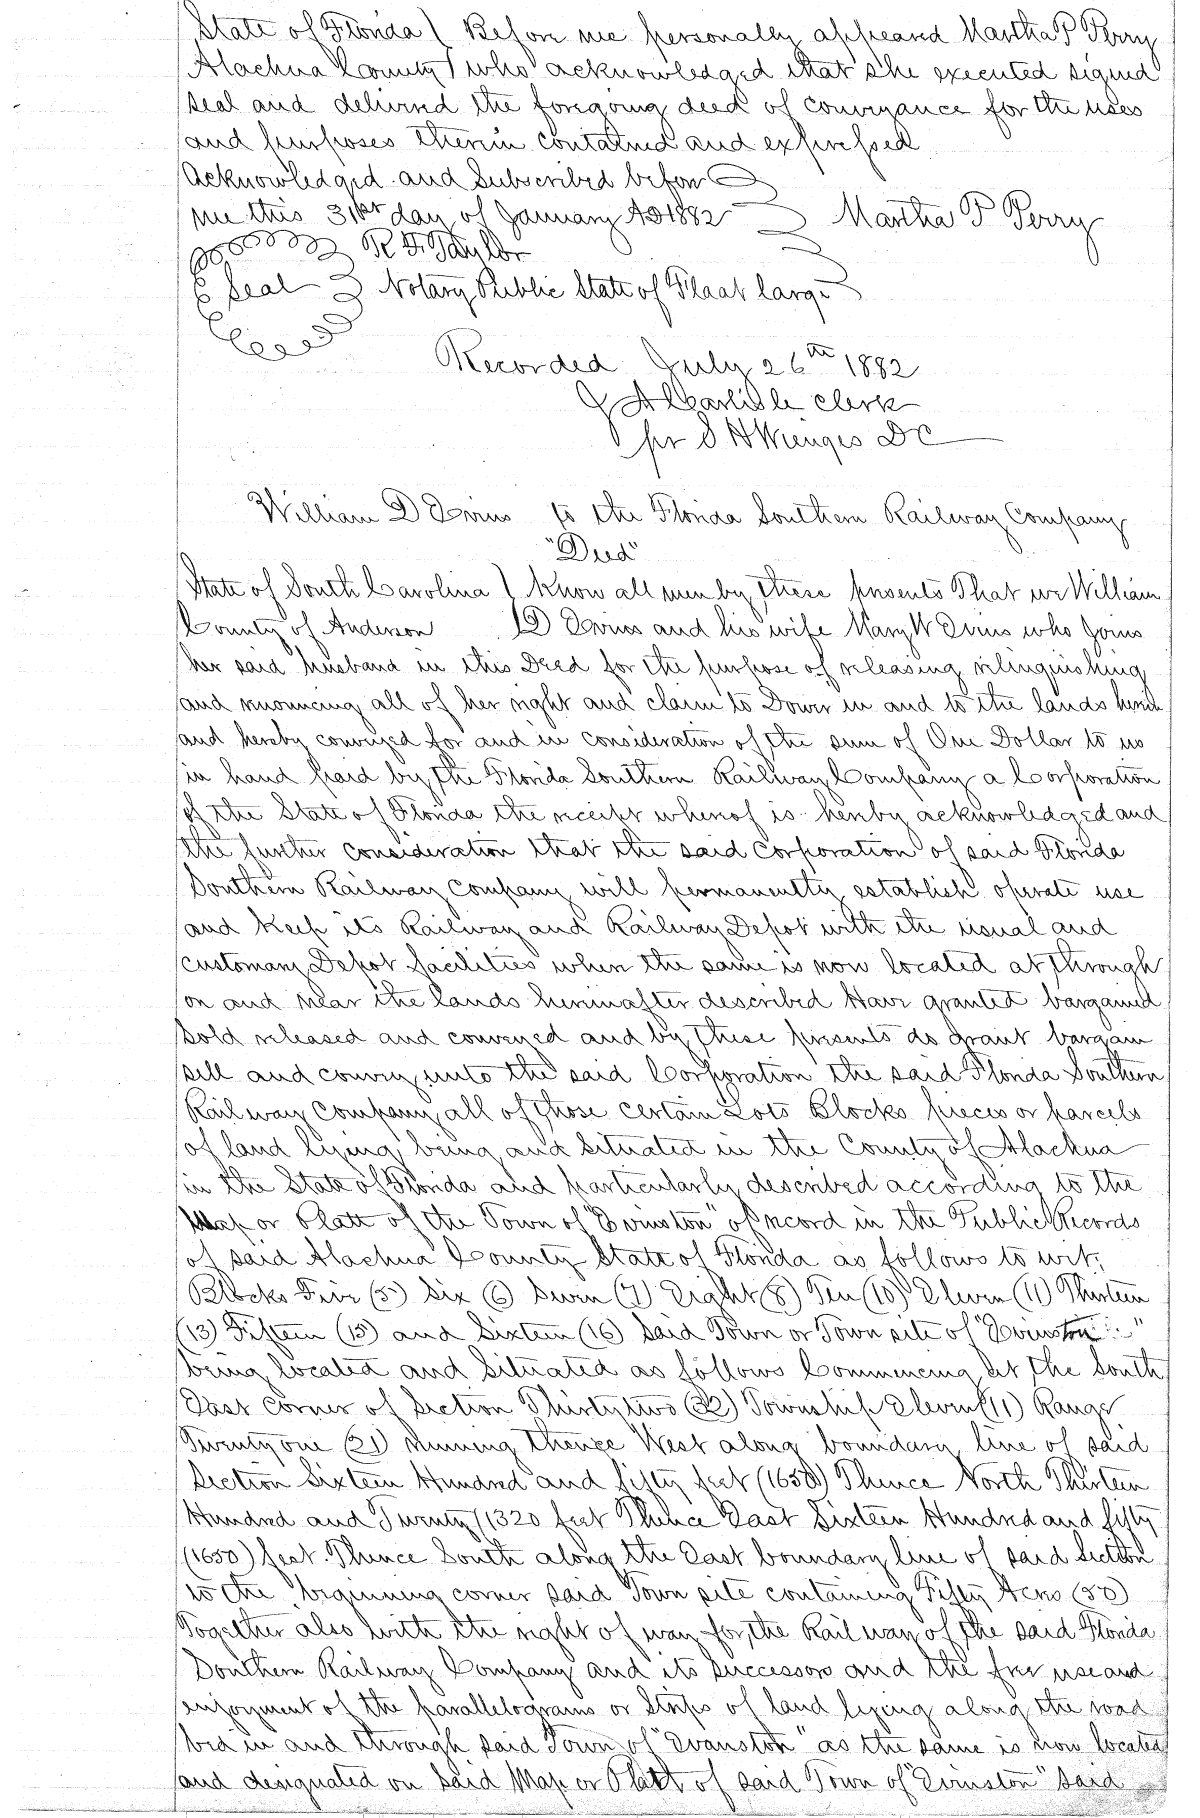 State of Florida ) Before me personally appeared Martha P Perry
Alachua County ) who acknowledged that she executed signed
seal and delivered the foregoing deed of conveyance for the uses
and purposes therein contained and expressed
Acknowledged and Subscribed before
me this 31st day of January AD 1882 Martha P Perry
R F Taylor
Seal Notary Public State of Fla at large
Recorded July 26th 1882
J A Carlisle Clerk
pr S H Wienges DC
William D Evins to the Florida Southern Railway Company
"Deed"
State of South Carolina ) Know all men by these presents That we William
County of Anderson D Evins and his wife Mary W Evins who joins
her said husband in this Deed for the purpose of releasing relinquishing
and renouncing all of her right and claim to Dower in and to the lands herein
and hereby conveyed for and in consideration of the sum of One Dollar to us
in hand paid by the Florida Southern Railway Company a Corporation
of the State of Florida the receipt whereof is hereby acknowledged and
the further consideration that the said Corporation of said Florida
Southern Railway Company will permanently establish operate use
and keep its Railway and Railway Depot with the usual and
customary Depot facilities when the same is now located at through
on and near the lands hereinafter described Have granted bargained
sold released and conveyed and by these presents do grant bargain
sell and convey unto the said Corporation the said Florida Southern
Railway Company all of those certain Lots Blocks pieces or parcels
of land lying being and situated in the County of Alachua
in the State of Florida and particularly described according to the
Map or Platt of the Town of "Evinston" of record in the Public Records
of said Alachua County State of Florida as follows to wit;
Blocks Five (5) Six (6) Seven (7) Eight (8) Ten (10) Eleven (11) Thirteen
(13) Fifteen (15) and Sixteen (16) said Town or Town site of "Evinston"
being located and situated as follows Commencing at the South
East corner of Section Thirty two (32) Township Eleven (11) Range
Twenty one (21) running thence West along boundary line of said
Section Sixteen Hundred and fifty feet (1650) Thence North Thirteen
Hundred and Twenty (1320 feet Thence East Sixteen Hundred and fifty
(1650) feet. Thence South along the East boundary line of said Section
to the beginning corner said Town site containing Fifty Acres (50)
Together also with the right of way for the Railway of the said Florida
Southern Railway Company and its successors and the free use and
enjoyment of the parallelograms or Strips of land lying along the road
bed in and through said Town of "Evanston" as the same is now located
and designated on said Map or Platt of said Town of "Evinston" said